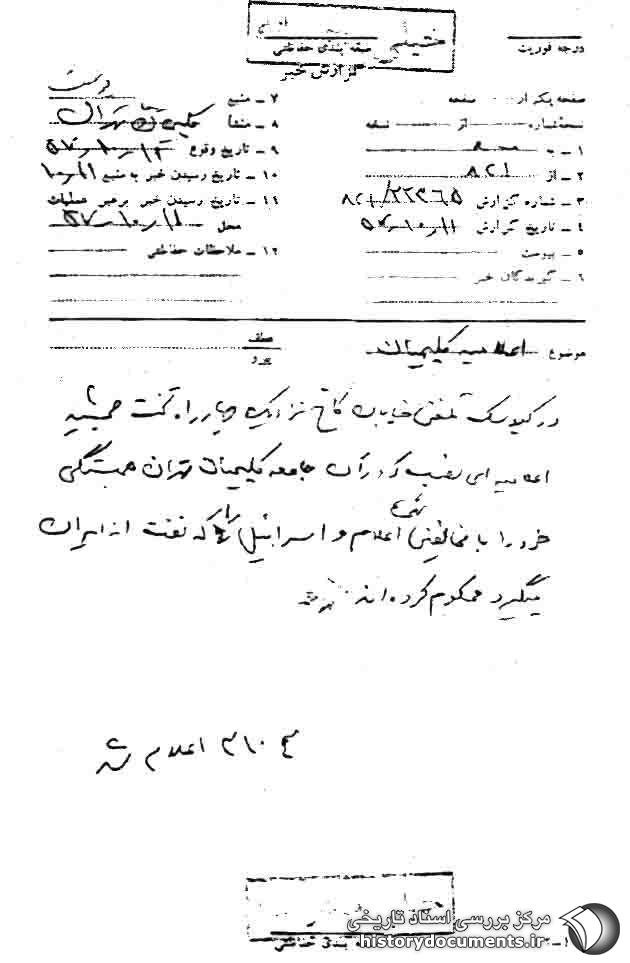 خیلی
درجه فوریت
طبقه بندی حفاظتی
گزارش خبر
صفحه یک از صفحه
نسخه شماره از نسخه
۱ - به
۲ - از ۸۲۱
۳ - شماره گزارش ۸۲۱/۲۲۳۶۵
۴ - تاریخ گزارش ۵۷-۱۰-۱۱
۵ - پیوست
۶ - گیرندگان خبر
۷ - منبع دوست
۸ - منشأ تهران
۹ - تاریخ وقوع ۵۷-۱۰-
۱۰ - تاریخ رسیدن خبر به منبع ۱۱-۱۰
۱۱ - تاریخ رسیدن خبر برهبر عملیات
محل ۵۷-۱۰-۱۱
۱۲ - ملاحظات حفاظتی
موضوع اعلامیه کلیمیان
عطف
پیرو
در کیوسک تلفن خیابان کاخ نزدیک چهارراه تخت جمشید
اعلامیه ای نصب که در آن جامعه کلیمیان تهران همبستگی
خود را با مخالفین اعلام و اسرائیل را که نفت از ایران
میگیرد محکوم کرده اند
۳۱۰۴ اعلام شد
طبقه بندی حفاظتی
مرکز بررسی اسناد تاریخی
historydocuments.ir